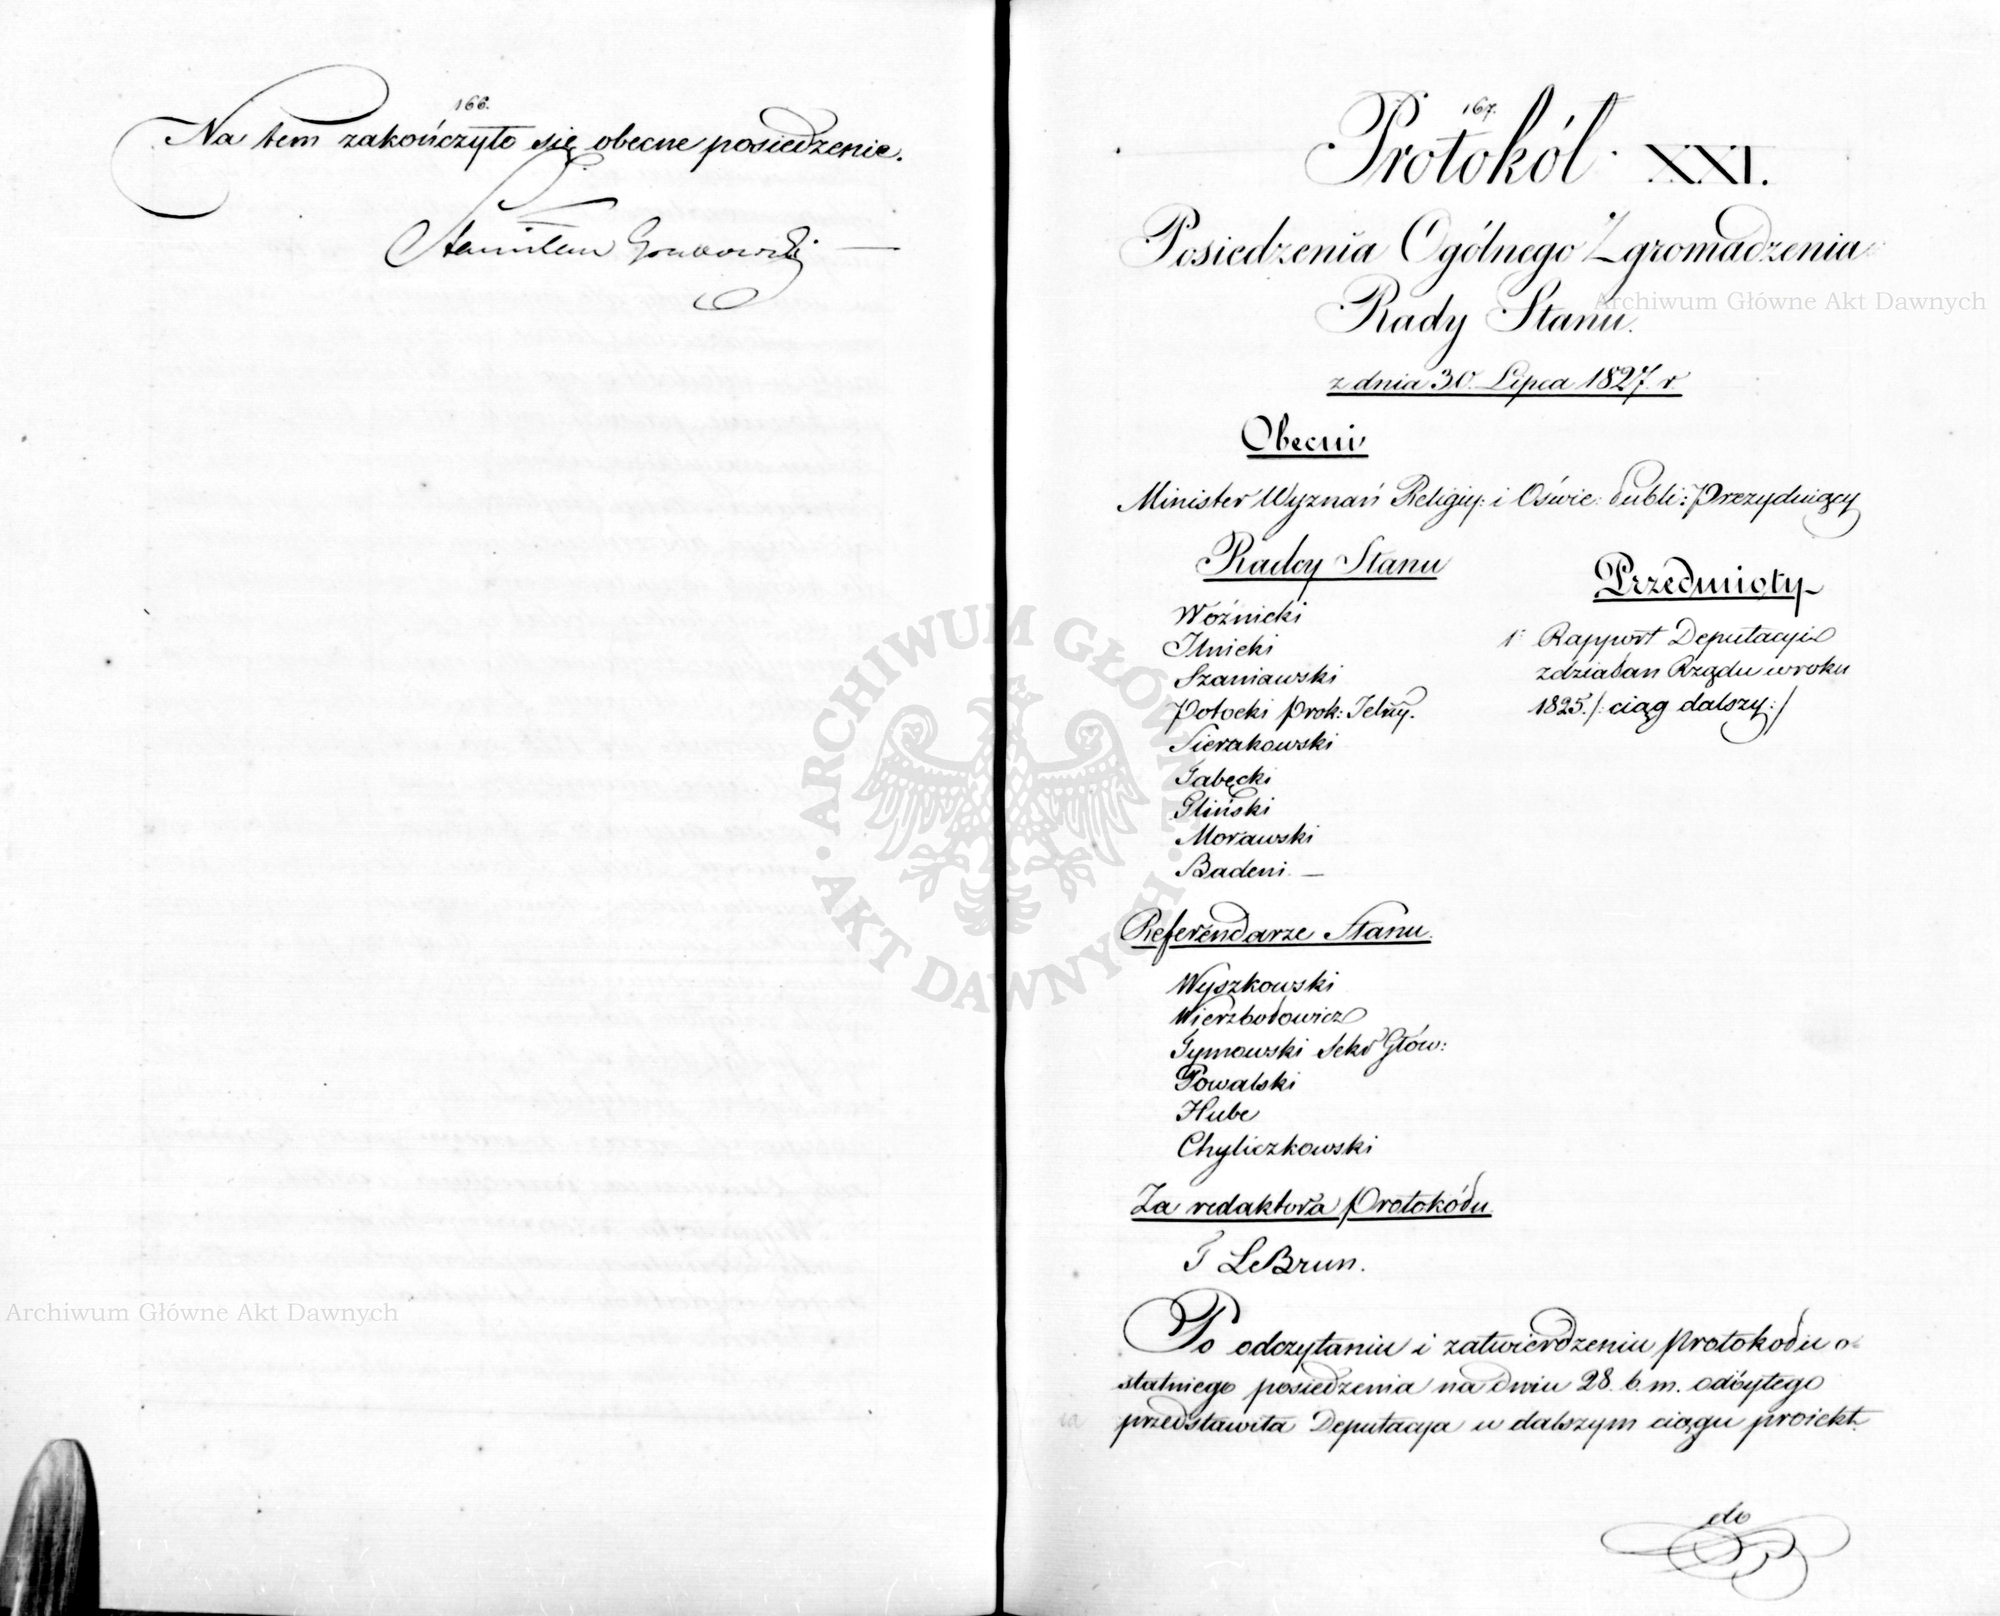 166.
Na tem zakończyło się obecne posiedzenie.
Stanisław Grabowski
167.
Protokół XXI.
Posiedzenia Ogólnego Zgromadzenia
Rady Stanu.
z dnia 30. Lipca 1827. r.
Obecni
Minister Wyznań Religiy: i Oświe: Publi: Prezyduiący
Radcy Stanu
Woźnicki
Ilnicki
Szaniawski
Potocki Prok: Jelny.
Sierakowski
Łabęcki
Gliński
Morawski
Badeni. —
Przedmioty
1º Rapport Deputacyi
z działań Rządu w roku
1825. /: ciąg dalszy :/
Referendarze Stanu.
Wyszkowski
Wierzbołowicz
Tymowski Sekr Głów:
Powalski
Hube
Chyliczkowski
Za redaktora Protokółu
T LeBrun.
Po odczytaniu i zatwierdzeniu protokołu o-
statniego posiedzenia na dniu 28. b. m. odbytego
przedstawiła Deputacya w dalszym ciągu proiekt
do
Archiwum Główne Akt Dawnych
Archiwum Główne Akt Dawnych
ARCHIWUM GŁÓWNE · AKT DAWNYCH ·